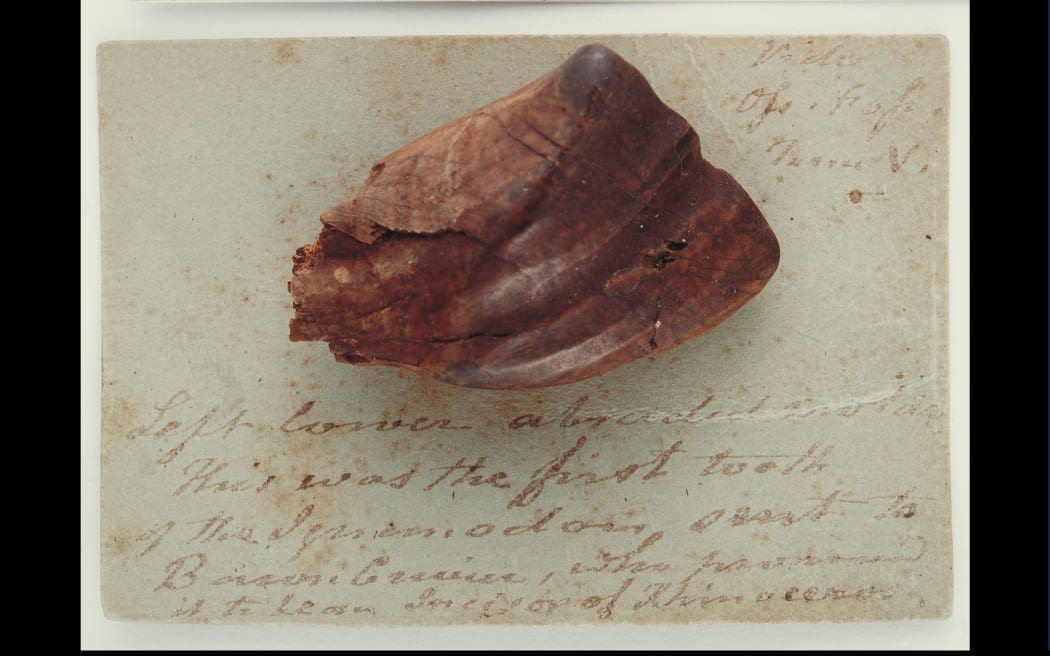 Vide
Oss. Foss.
Tom V.
Left lower abraded molar
This was the first tooth
of the Iguanodon, sent to
Baron Cuvier, who pronounced
it to be an Incisor of Rhinoceros.